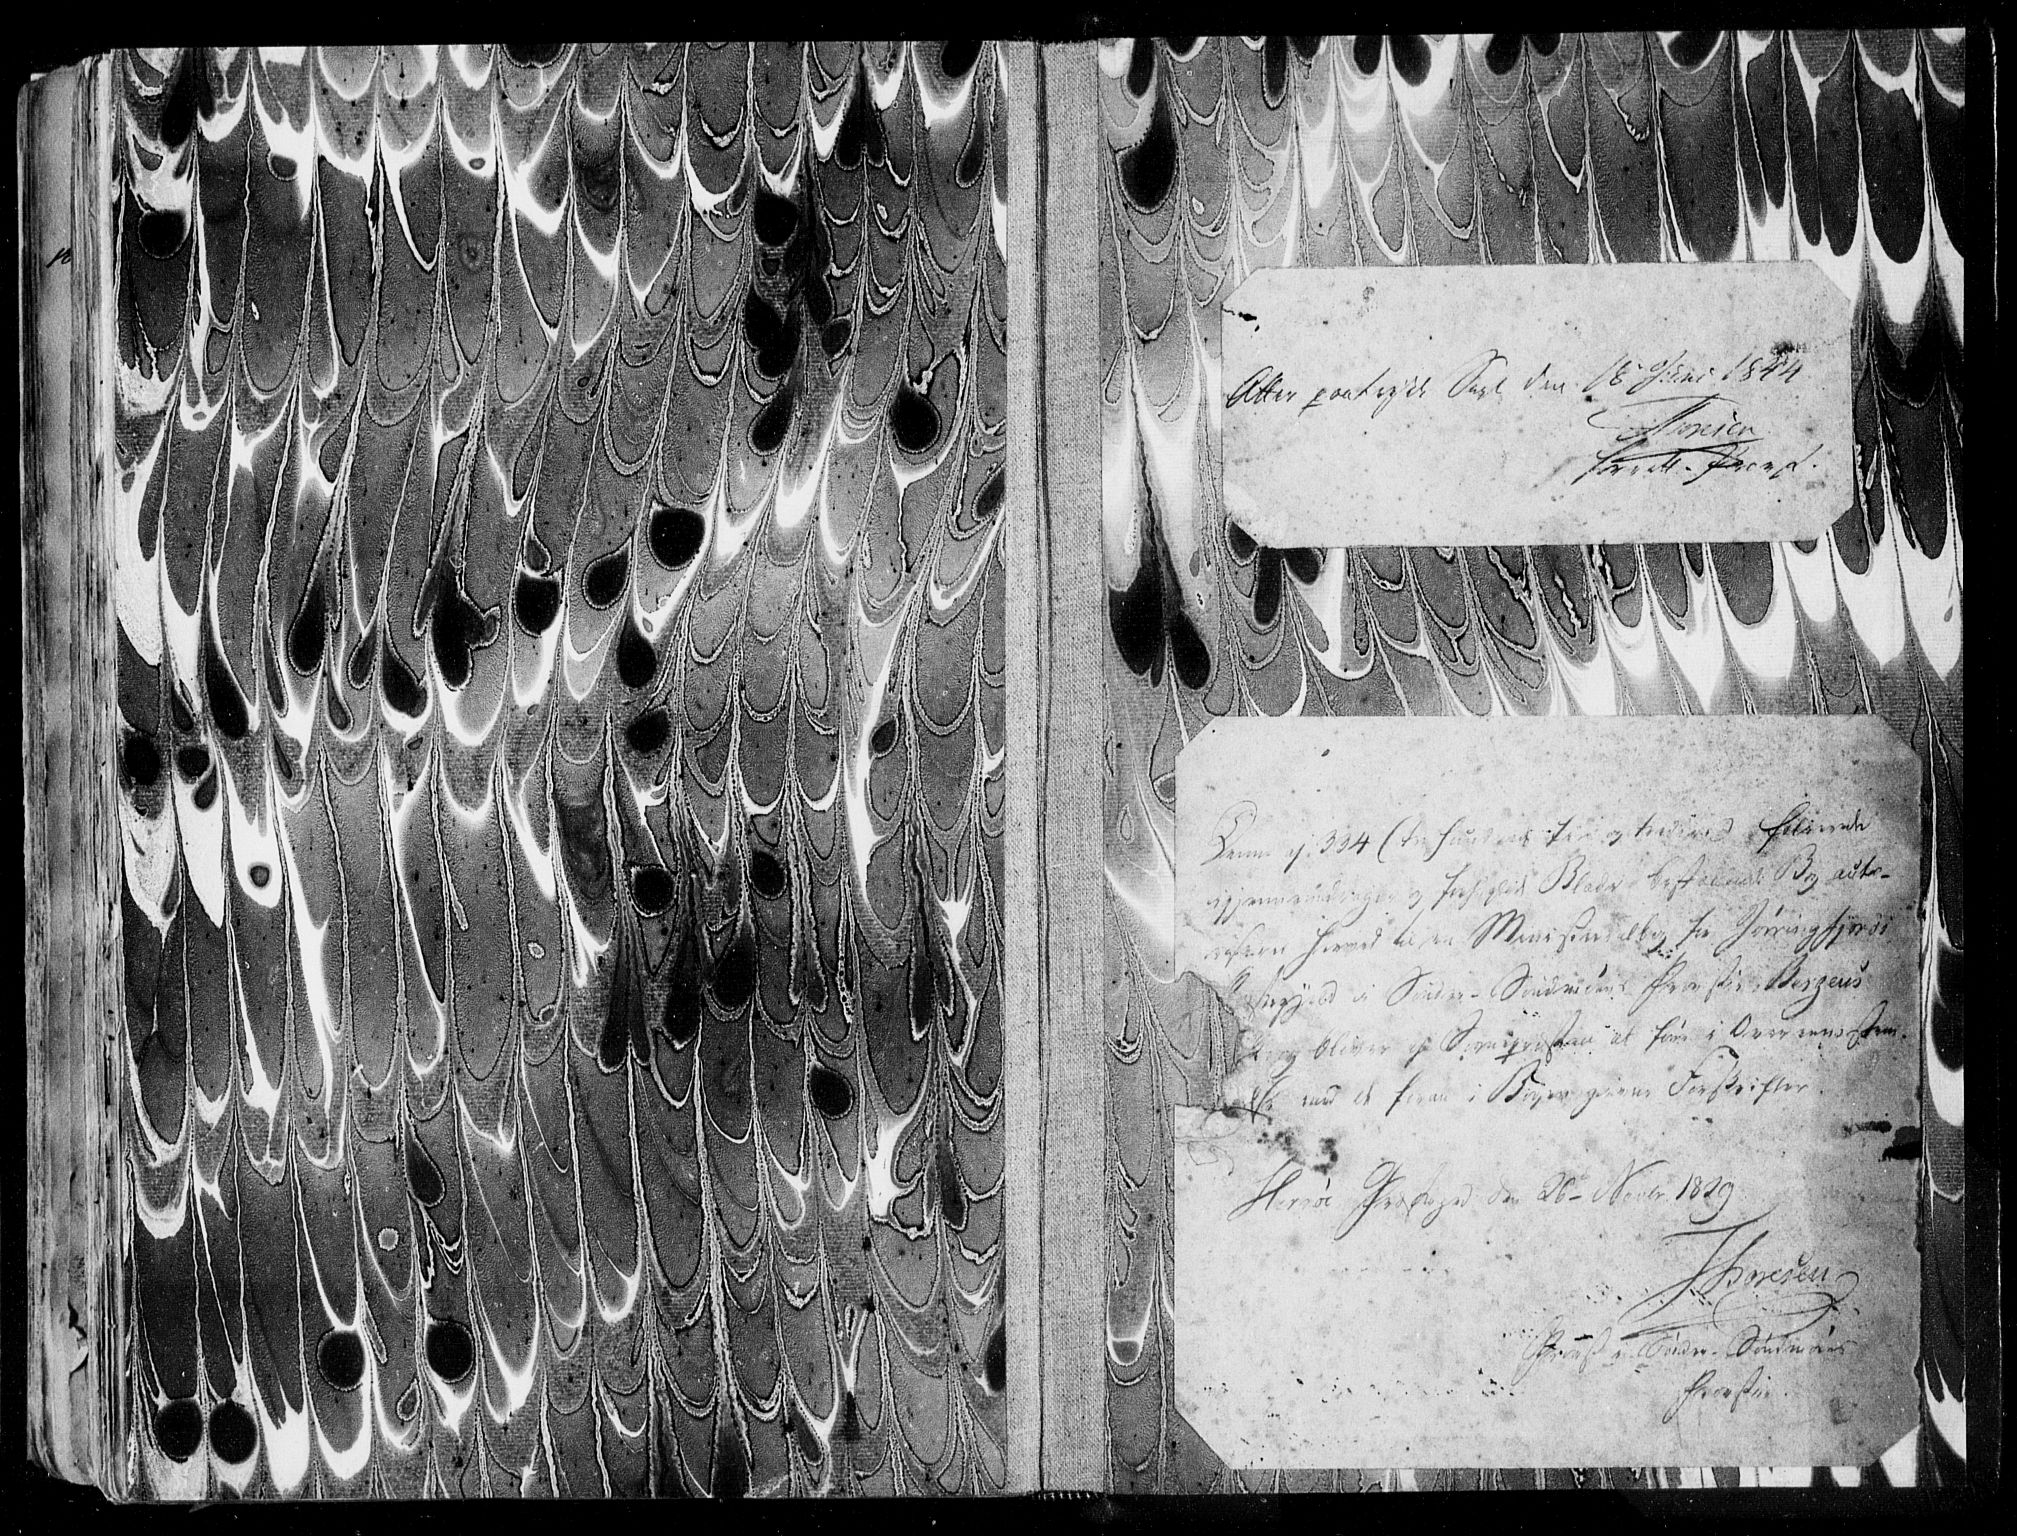 Atter paatrykt Segl den 18 Juni 1844
Thoresen
Denne af 334 (tre hundrede fire og tredive) folierede
igjennemdragne og forseglede Blade bestaaende Bog auto-
riseres herved til en Ministerialbog for Jörringfjords
Præstegjeld i Sönder-Söndmörs Provstie, Bergens
og bliver af Sognepræsten at före i Overeensstem-
else med de foran i Bogen givne Forskrifter.
Heröe Præstegaard den 26 Novbr 1829
Thoresen
Provst i Sönder-Söndmörs
Provstie.